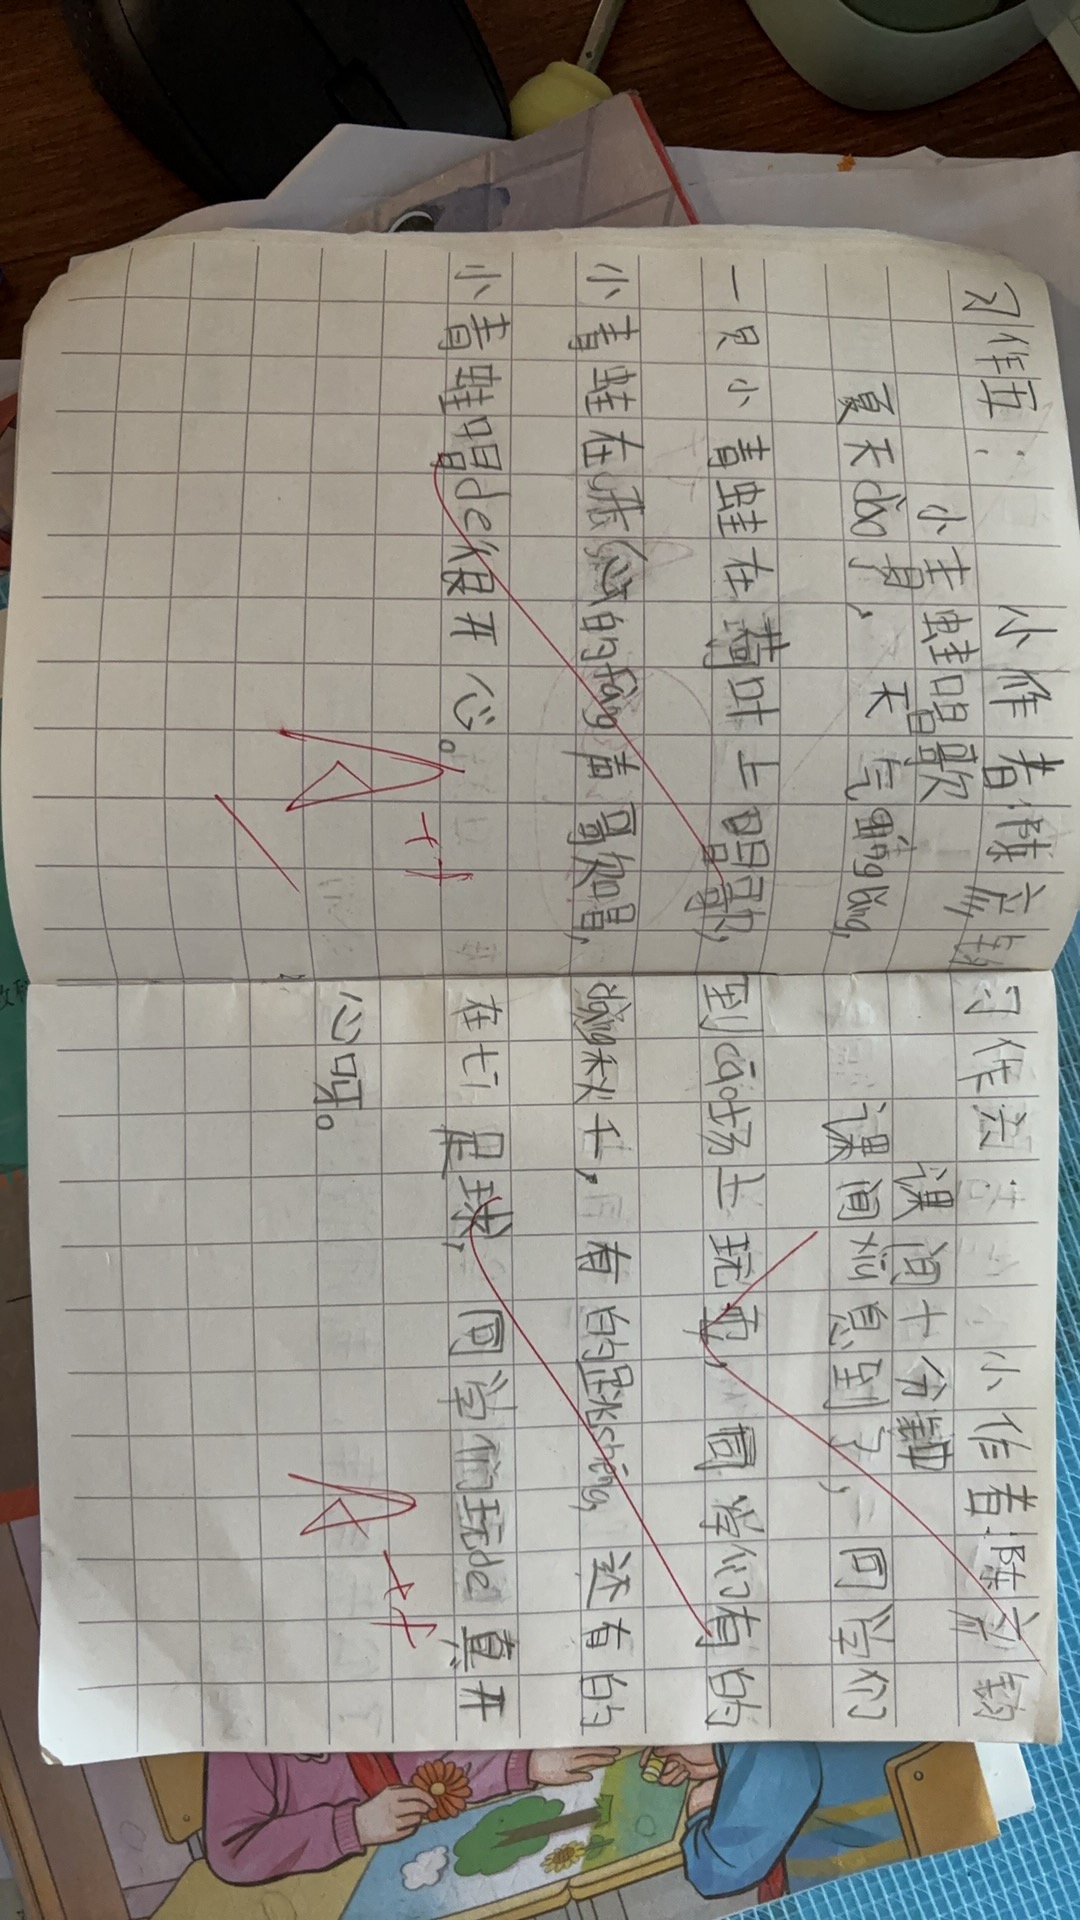 习作五: 小作者陈立钧
小主蛙唱歌
夏天dào了, 天气晴lǎng,
一只小青蛙在荷叶上唱歌,
小青蛙在的fàng声哥欠唱,
小青蛙唱de很开心。
A++
习作六 小作者:陈立钧
课间十分钟
课间xiū息到了, 同学们
到cāo场上玩, 同学们有的
dàng秋千, 有的跳shéng, 还有的
在七足球, 同学们玩de真开
心呀。
A++